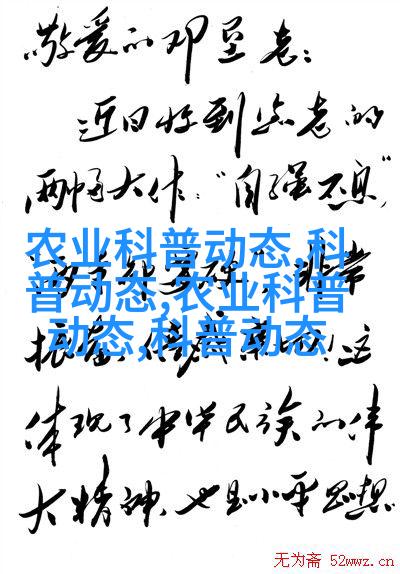 敬爱的邓垦老:
近日收到您老的
两幅大作:“自强不息”
农业科普动态,科
普动态,农业科普
动态,科普动态
非常
这
体现了中华民族的伟
大精神,也是小平思想
无为斋 52wwz.cn